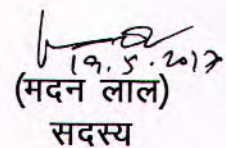 19.5.2017
(मदन लाल)
सदस्य